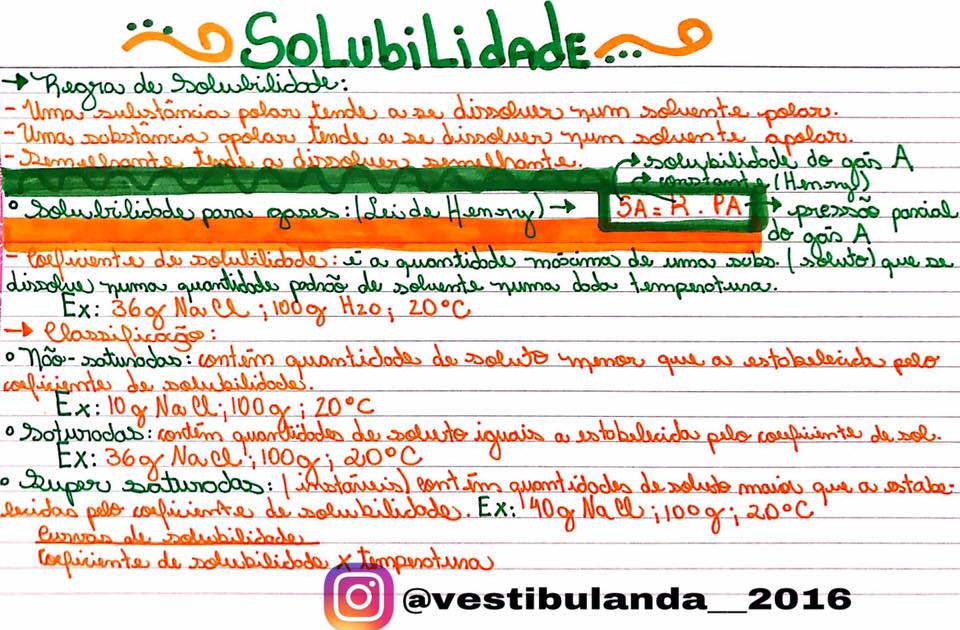 SOLUBILIDADE
→ Regra de solubilidade:
- Uma substância polar tende a se dissolver num solvente polar.
- Uma substância apolar tende a se dissolver num solvente apolar.
- Semelhante tende a dissolver semelhante.
→ solubilidade do gás A
→ constante (Henry)
° Solubilidade para gases: (Lei de Henry) → SA = K . PA → pressão parcial
do gás A
- Coeficiente de solubilidade: é a quantidade máxima de uma subs. (soluto) que se
dissolve numa quantidade padrão de solvente numa dada temperatura.
Ex: 36g NaCl ; 100g H2O ; 20°C
→ Classificação:
° Não-saturadas: contém quantidade de soluto menor que a estabelecida pelo
coeficiente de solubilidade.
Ex: 10g NaCl ; 100g ; 20°C
° Saturadas: contém quantidades de soluto iguais a estabelecida pelo coeficiente de sol.
Ex: 36g NaCl ; 100g ; 20°C
° Super saturadas: (instáveis) contém quantidades de soluto maior que a estabe-
lecidas pelo coeficiente de solubilidade. Ex: 40g NaCl ; 100g ; 20°C
Curvas de solubilidade
Coeficiente de solubilidade x temperatura
@vestibulanda__2016